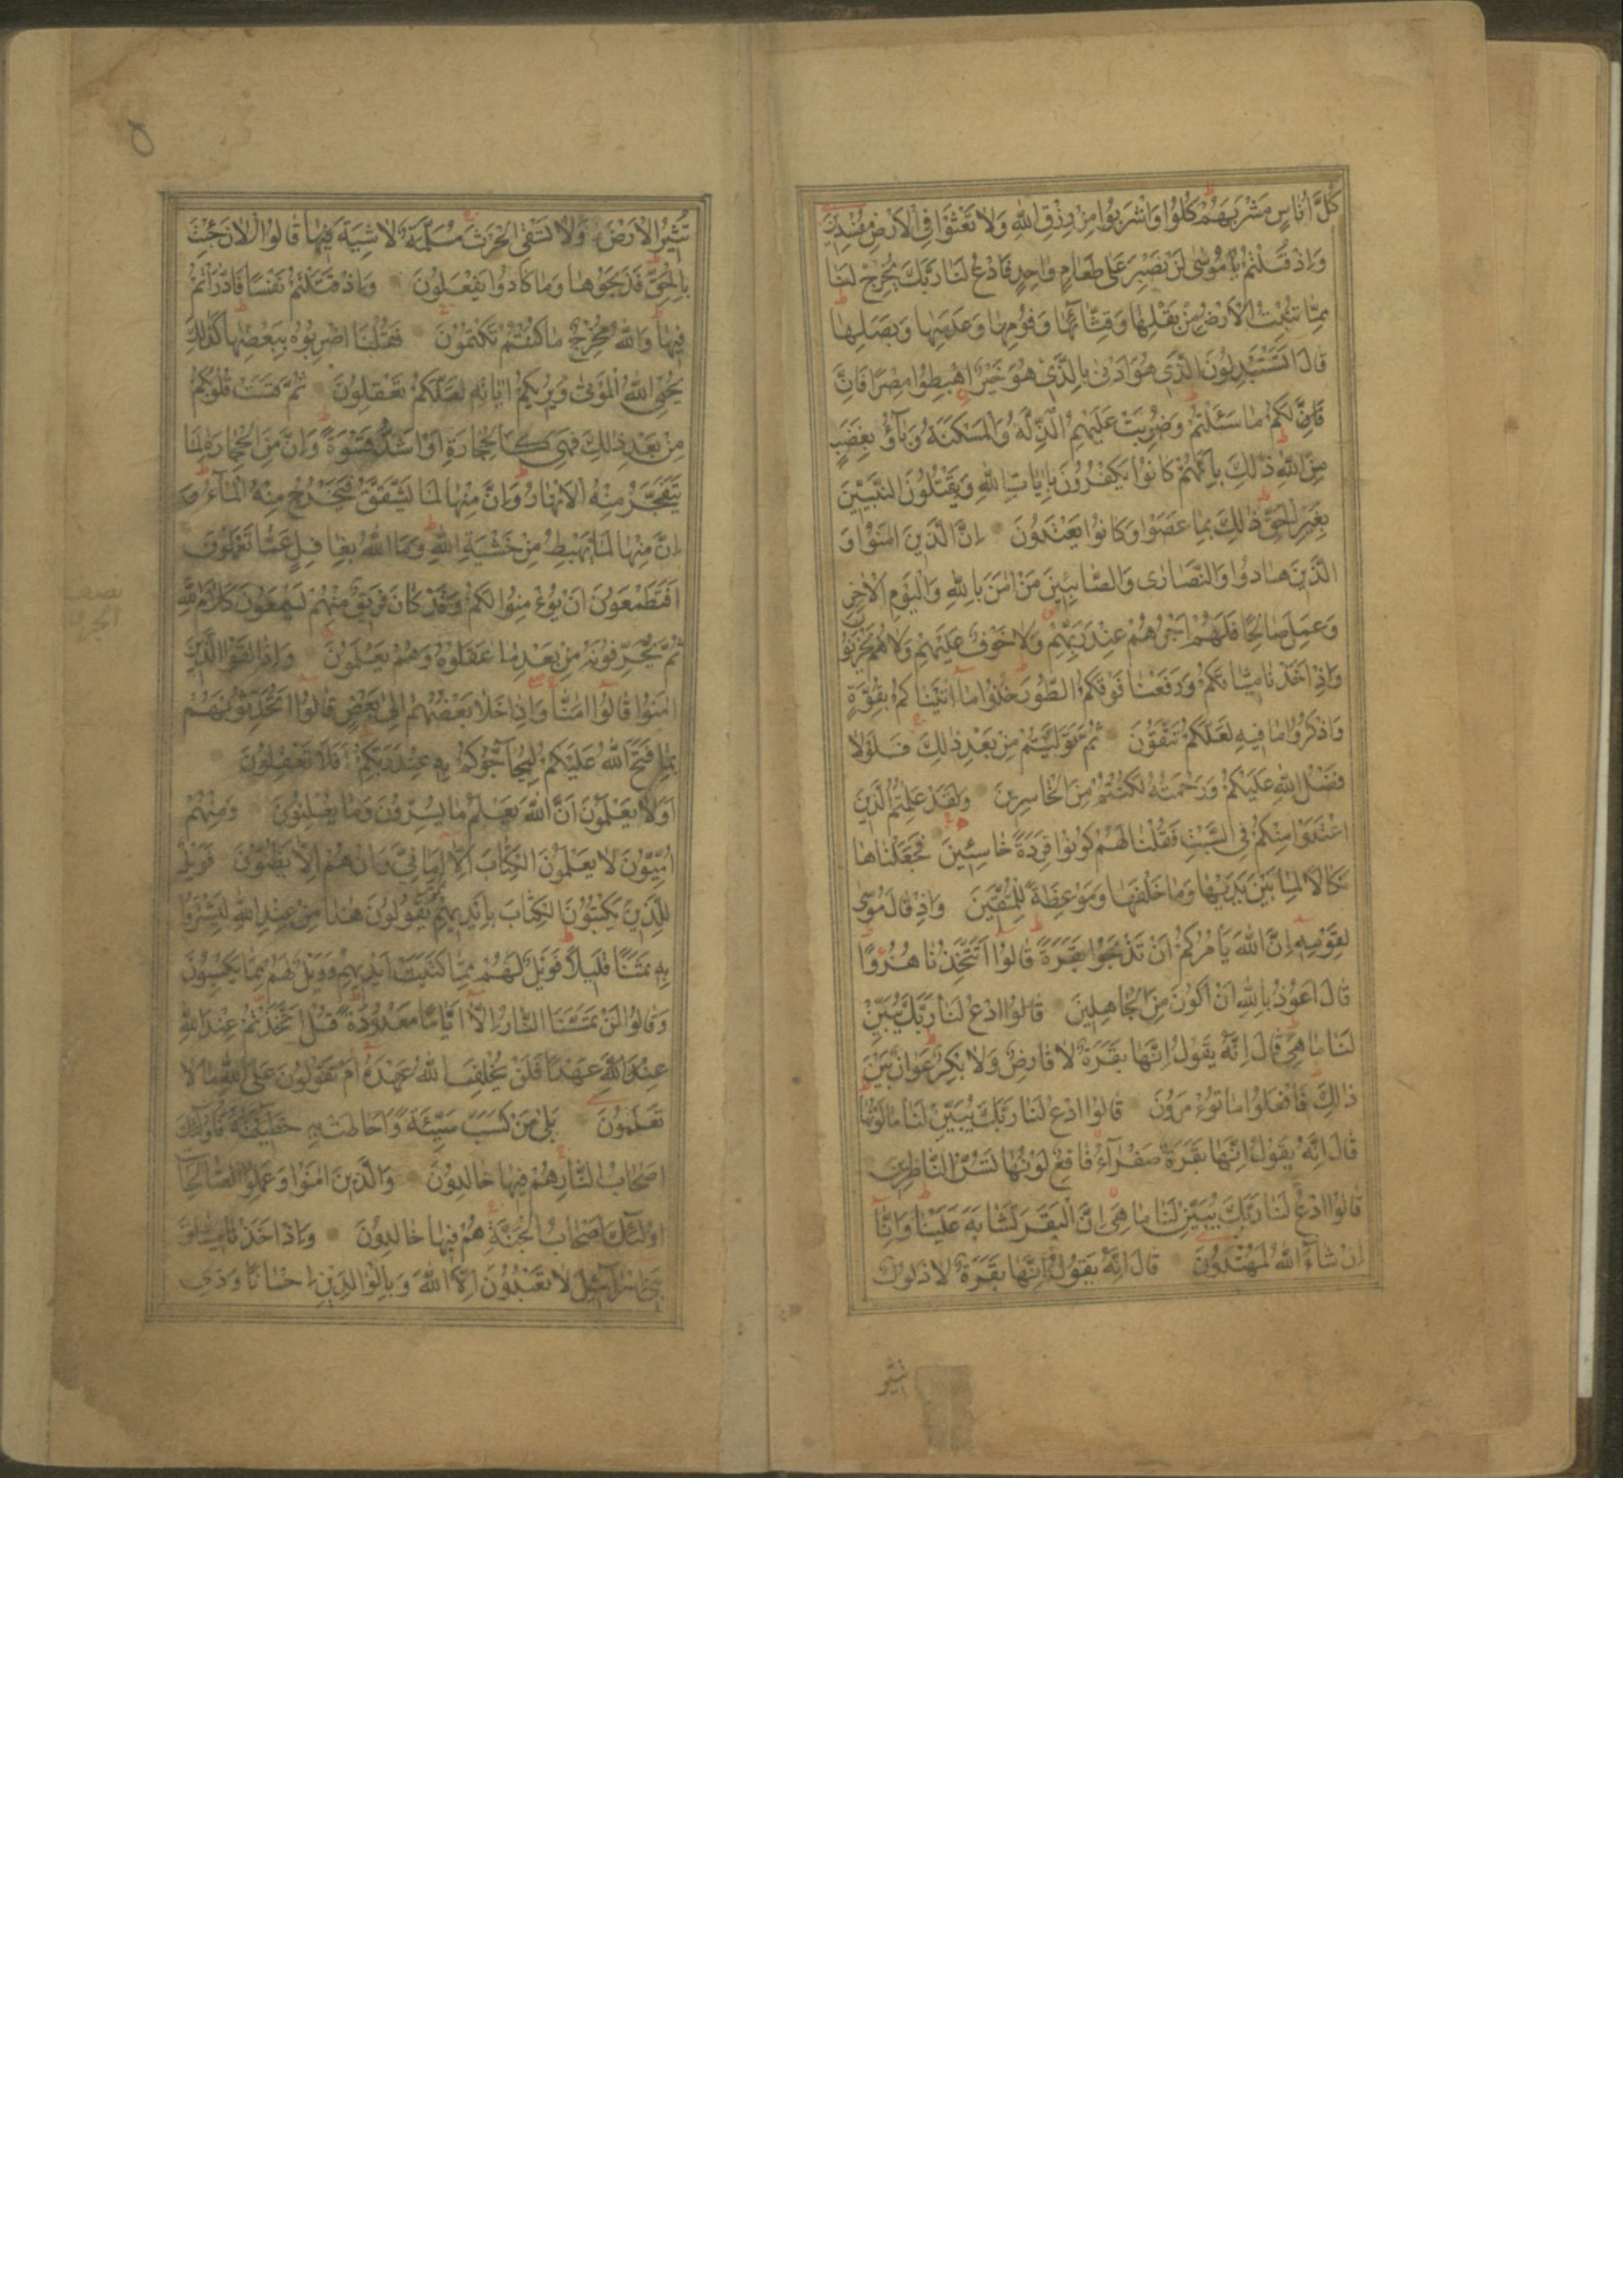 كُلُّ اُنَاسٍ مَشْرَبَهُمْ كُلُوا وَاشْرَبُوا مِنْ رِزْقِ اللّٰهِ وَلَا تَعْثَوْا فِي الْاَرْضِ مُفْسِدِينَ
وَاِذْ قُلْتُمْ يَا مُوسٰى لَنْ نَصْبِرَ عَلٰى طَعَامٍ وَاحِدٍ فَادْعُ لَنَا رَبَّكَ يُخْرِجْ لَنَا
مِمَّا تُنْبِتُ الْاَرْضُ مِنْ بَقْلِهَا وَقِثَّائِهَا وَفُومِهَا وَعَدَسِهَا وَبَصَلِهَا
قَالَ اَتَسْتَبْدِلُونَ الَّذِي هُوَ اَدْنٰى بِالَّذِي هُوَ خَيْرٌ اِهْبِطُوا مِصْرًا فَاِنَّ
لَكُمْ مَا سَئَلْتُمْ وَضُرِبَتْ عَلَيْهِمُ الذِّلَّةُ وَالْمَسْكَنَةُ وَبَآؤُ بِغَضَبٍ
مِنَ اللّٰهِ ذٰلِكَ بِاَنَّهُمْ كَانُوا يَكْفُرُونَ بِاٰيَاتِ اللّٰهِ وَيَقْتُلُونَ النَّبِيّٖنَ
بِغَيْرِ الْحَقِّ ذٰلِكَ بِمَا عَصَوْا وَكَانُوا يَعْتَدُونَ اِنَّ الَّذِينَ اٰمَنُوا وَ
الَّذِينَ هَادُوا وَالنَّصَارٰى وَالصَّابِئِينَ مَنْ اٰمَنَ بِاللّٰهِ وَالْيَوْمِ الْاٰخِرِ
وَعَمِلَ صَالِحًا فَلَهُمْ اَجْرُهُمْ عِنْدَ رَبِّهِمْ وَلَا خَوْفٌ عَلَيْهِمْ وَلَا هُمْ يَحْزَنُونَ
وَاِذْ اَخَذْنَا مِيثَاقَكُمْ وَرَفَعْنَا فَوْقَكُمُ الطُّورَ خُذُوا مَا اٰتَيْنَاكُمْ بِقُوَّةٍ
وَاذْكُرُوا مَا فِيهِ لَعَلَّكُمْ تَتَّقُونَ ثُمَّ تَوَلَّيْتُمْ مِنْ بَعْدِ ذٰلِكَ فَلَوْلَا
فَضْلُ اللّٰهِ عَلَيْكُمْ وَرَحْمَتُهُ لَكُنْتُمْ مِنَ الْخَاسِرِينَ وَلَقَدْ عَلِمْتُمُ الَّذِينَ
اعْتَدَوْا مِنْكُمْ فِي السَّبْتِ فَقُلْنَا لَهُمْ كُونُوا قِرَدَةً خَاسِئِينَ فَجَعَلْنَاهَا
نَكَالًا لِمَا بَيْنَ يَدَيْهَا وَمَا خَلْفَهَا وَمَوْعِظَةً لِلْمُتَّقِينَ وَاِذْ قَالَ مُوسٰى
لِقَوْمِهِ اِنَّ اللّٰهَ يَاْمُرُكُمْ اَنْ تَذْبَحُوا بَقَرَةً قَالُوا اَتَتَّخِذُنَا هُزُوًا
قَالَ اَعُوذُ بِاللّٰهِ اَنْ اَكُونَ مِنَ الْجَاهِلِينَ قَالُوا ادْعُ لَنَا رَبَّكَ يُبَيِّنْ
لَنَا مَا هِيَ قَالَ اِنَّهُ يَقُولُ اِنَّهَا بَقَرَةٌ لَا فَارِضٌ وَلَا بِكْرٌ عَوَانٌ بَيْنَ
ذٰلِكَ فَافْعَلُوا مَا تُؤْمَرُونَ قَالُوا ادْعُ لَنَا رَبَّكَ يُبَيِّنْ لَنَا مَا لَوْنُهَا
قَالَ اِنَّهُ يَقُولُ اِنَّهَا بَقَرَةٌ صَفْرَآءُ فَاقِعٌ لَوْنُهَا تَسُرُّ النَّاظِرِينَ
قَالُوا ادْعُ لَنَا رَبَّكَ يُبَيِّنْ لَنَا مَا هِيَ اِنَّ الْبَقَرَ تَشَابَهَ عَلَيْنَا وَاِنَّا
اِنْ شَآءَ اللّٰهُ لَمُهْتَدُونَ قَالَ اِنَّهُ يَقُولُ اِنَّهَا بَقَرَةٌ لَا ذَلُولٌ
تثير
تُثِيرُ الْاَرْضَ وَلَا تَسْقِي الْحَرْثَ مُسَلَّمَةٌ لَا شِيَةَ فِيهَا قَالُوا الْاٰنَ جِئْتَ
بِالْحَقِّ فَذَبَحُوهَا وَمَا كَادُوا يَفْعَلُونَ وَاِذْ قَتَلْتُمْ نَفْسًا فَادّٰرَاْتُمْ
فِيهَا وَاللّٰهُ مُخْرِجٌ مَا كُنْتُمْ تَكْتُمُونَ فَقُلْنَا اضْرِبُوهُ بِبَعْضِهَا كَذٰلِكَ
يُحْيِي اللّٰهُ الْمَوْتٰى وَيُرِيكُمْ اٰيَاتِهِ لَعَلَّكُمْ تَعْقِلُونَ ثُمَّ قَسَتْ قُلُوبُكُمْ
مِنْ بَعْدِ ذٰلِكَ فَهِيَ كَالْحِجَارَةِ اَوْ اَشَدُّ قَسْوَةً وَاِنَّ مِنَ الْحِجَارَةِ لَمَا
يَتَفَجَّرُ مِنْهُ الْاَنْهَارُ وَاِنَّ مِنْهَا لَمَا يَشَّقَّقُ فَيَخْرُجُ مِنْهُ الْمَآءُ وَ
اِنَّ مِنْهَا لَمَا يَهْبِطُ مِنْ خَشْيَةِ اللّٰهِ وَمَا اللّٰهُ بِغَافِلٍ عَمَّا تَعْمَلُونَ
اَفَتَطْمَعُونَ اَنْ يُؤْمِنُوا لَكُمْ وَقَدْ كَانَ فَرِيقٌ مِنْهُمْ يَسْمَعُونَ كَلَامَ اللّٰهِ
ثُمَّ يُحَرِّفُونَهُ مِنْ بَعْدِ مَا عَقَلُوهُ وَهُمْ يَعْلَمُونَ وَاِذَا لَقُوا الَّذِينَ
اٰمَنُوا قَالُوا اٰمَنَّا وَاِذَا خَلَا بَعْضُهُمْ اِلٰى بَعْضٍ قَالُوا اَتُحَدِّثُونَهُمْ
بِمَا فَتَحَ اللّٰهُ عَلَيْكُمْ لِيُحَآجُّوكُمْ بِهِ عِنْدَ رَبِّكُمْ اَفَلَا تَعْقِلُونَ
اَوَلَا يَعْلَمُونَ اَنَّ اللّٰهَ يَعْلَمُ مَا يُسِرُّونَ وَمَا يُعْلِنُونَ وَمِنْهُمْ
اُمِّيُّونَ لَا يَعْلَمُونَ الْكِتَابَ اِلَّا اَمَانِيَّ وَاِنْ هُمْ اِلَّا يَظُنُّونَ فَوَيْلٌ
لِلَّذِينَ يَكْتُبُونَ الْكِتَابَ بِاَيْدِيهِمْ ثُمَّ يَقُولُونَ هٰذَا مِنْ عِنْدِ اللّٰهِ لِيَشْتَرُوا
بِهِ ثَمَنًا قَلِيلًا فَوَيْلٌ لَهُمْ مِمَّا كَتَبَتْ اَيْدِيهِمْ وَوَيْلٌ لَهُمْ مِمَّا يَكْسِبُونَ
وَقَالُوا لَنْ تَمَسَّنَا النَّارُ اِلَّا اَيَّامًا مَعْدُودَةً قُلْ اَتَّخَذْتُمْ عِنْدَ اللّٰهِ
عِنْدَ اللّٰهِ عَهْدًا فَلَنْ يُخْلِفَ اللّٰهُ عَهْدَهُ اَمْ تَقُولُونَ عَلَى اللّٰهِ مَا لَا
تَعْلَمُونَ بَلٰى مَنْ كَسَبَ سَيِّئَةً وَاَحَاطَتْ بِهِ خَطِيئَتُهُ فَاُولٰئِكَ
اَصْحَابُ النَّارِ هُمْ فِيهَا خَالِدُونَ وَالَّذِينَ اٰمَنُوا وَعَمِلُوا الصَّالِحَاتِ
اُولٰئِكَ اَصْحَابُ الْجَنَّةِ هُمْ فِيهَا خَالِدُونَ وَاِذْ اَخَذْنَا مِيثَاقَ
بَنِي اِسْرَآئِيلَ لَا تَعْبُدُونَ اِلَّا اللّٰهَ وَبِالْوَالِدَيْنِ اِحْسَانًا وَذِي
نصف
الجزء